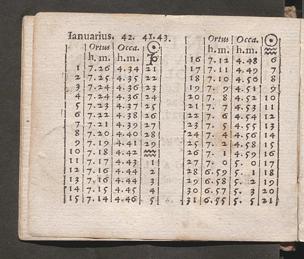 Ianuarius. 42. 41.43.
Ortus Occa. ☉
h. m. h. m. ♑
1 7.26 4.34 21
2 7.25 4.35 22
3 7.24 4.36 23
4 7.24 4.36 24
5 7.23 4.37 25
6 7.22 4.38 26
7 7.21 4.39 27
8 7.20 4.40 28
9 7.19 4.41 29
10 7.18 4.42 ♒
11 7.17 4.43 1
12 7.16 4.44 2
13 7.16 4.44 3
14 7.15 4.45 4
15 7.14 4.46 5
Ortus Occa. ☉
h. m. h. m. ♒
16 7.12 4.48 6
17 7.11 4.49 7
18 7.10 4.50 8
19 7. 9
20 7. 8
21 7. 7 4.53
22 7. 6 4.54
23 7. 5 4.55
24 7. 4 4.56
25 7. 2 4.58
26 7. 1 4.59
27 7. 0 5. 0
28 6.59 5. 1
29 6.58 5. 2
30 6.57 5. 3 20
31 6.55 5. 5 21